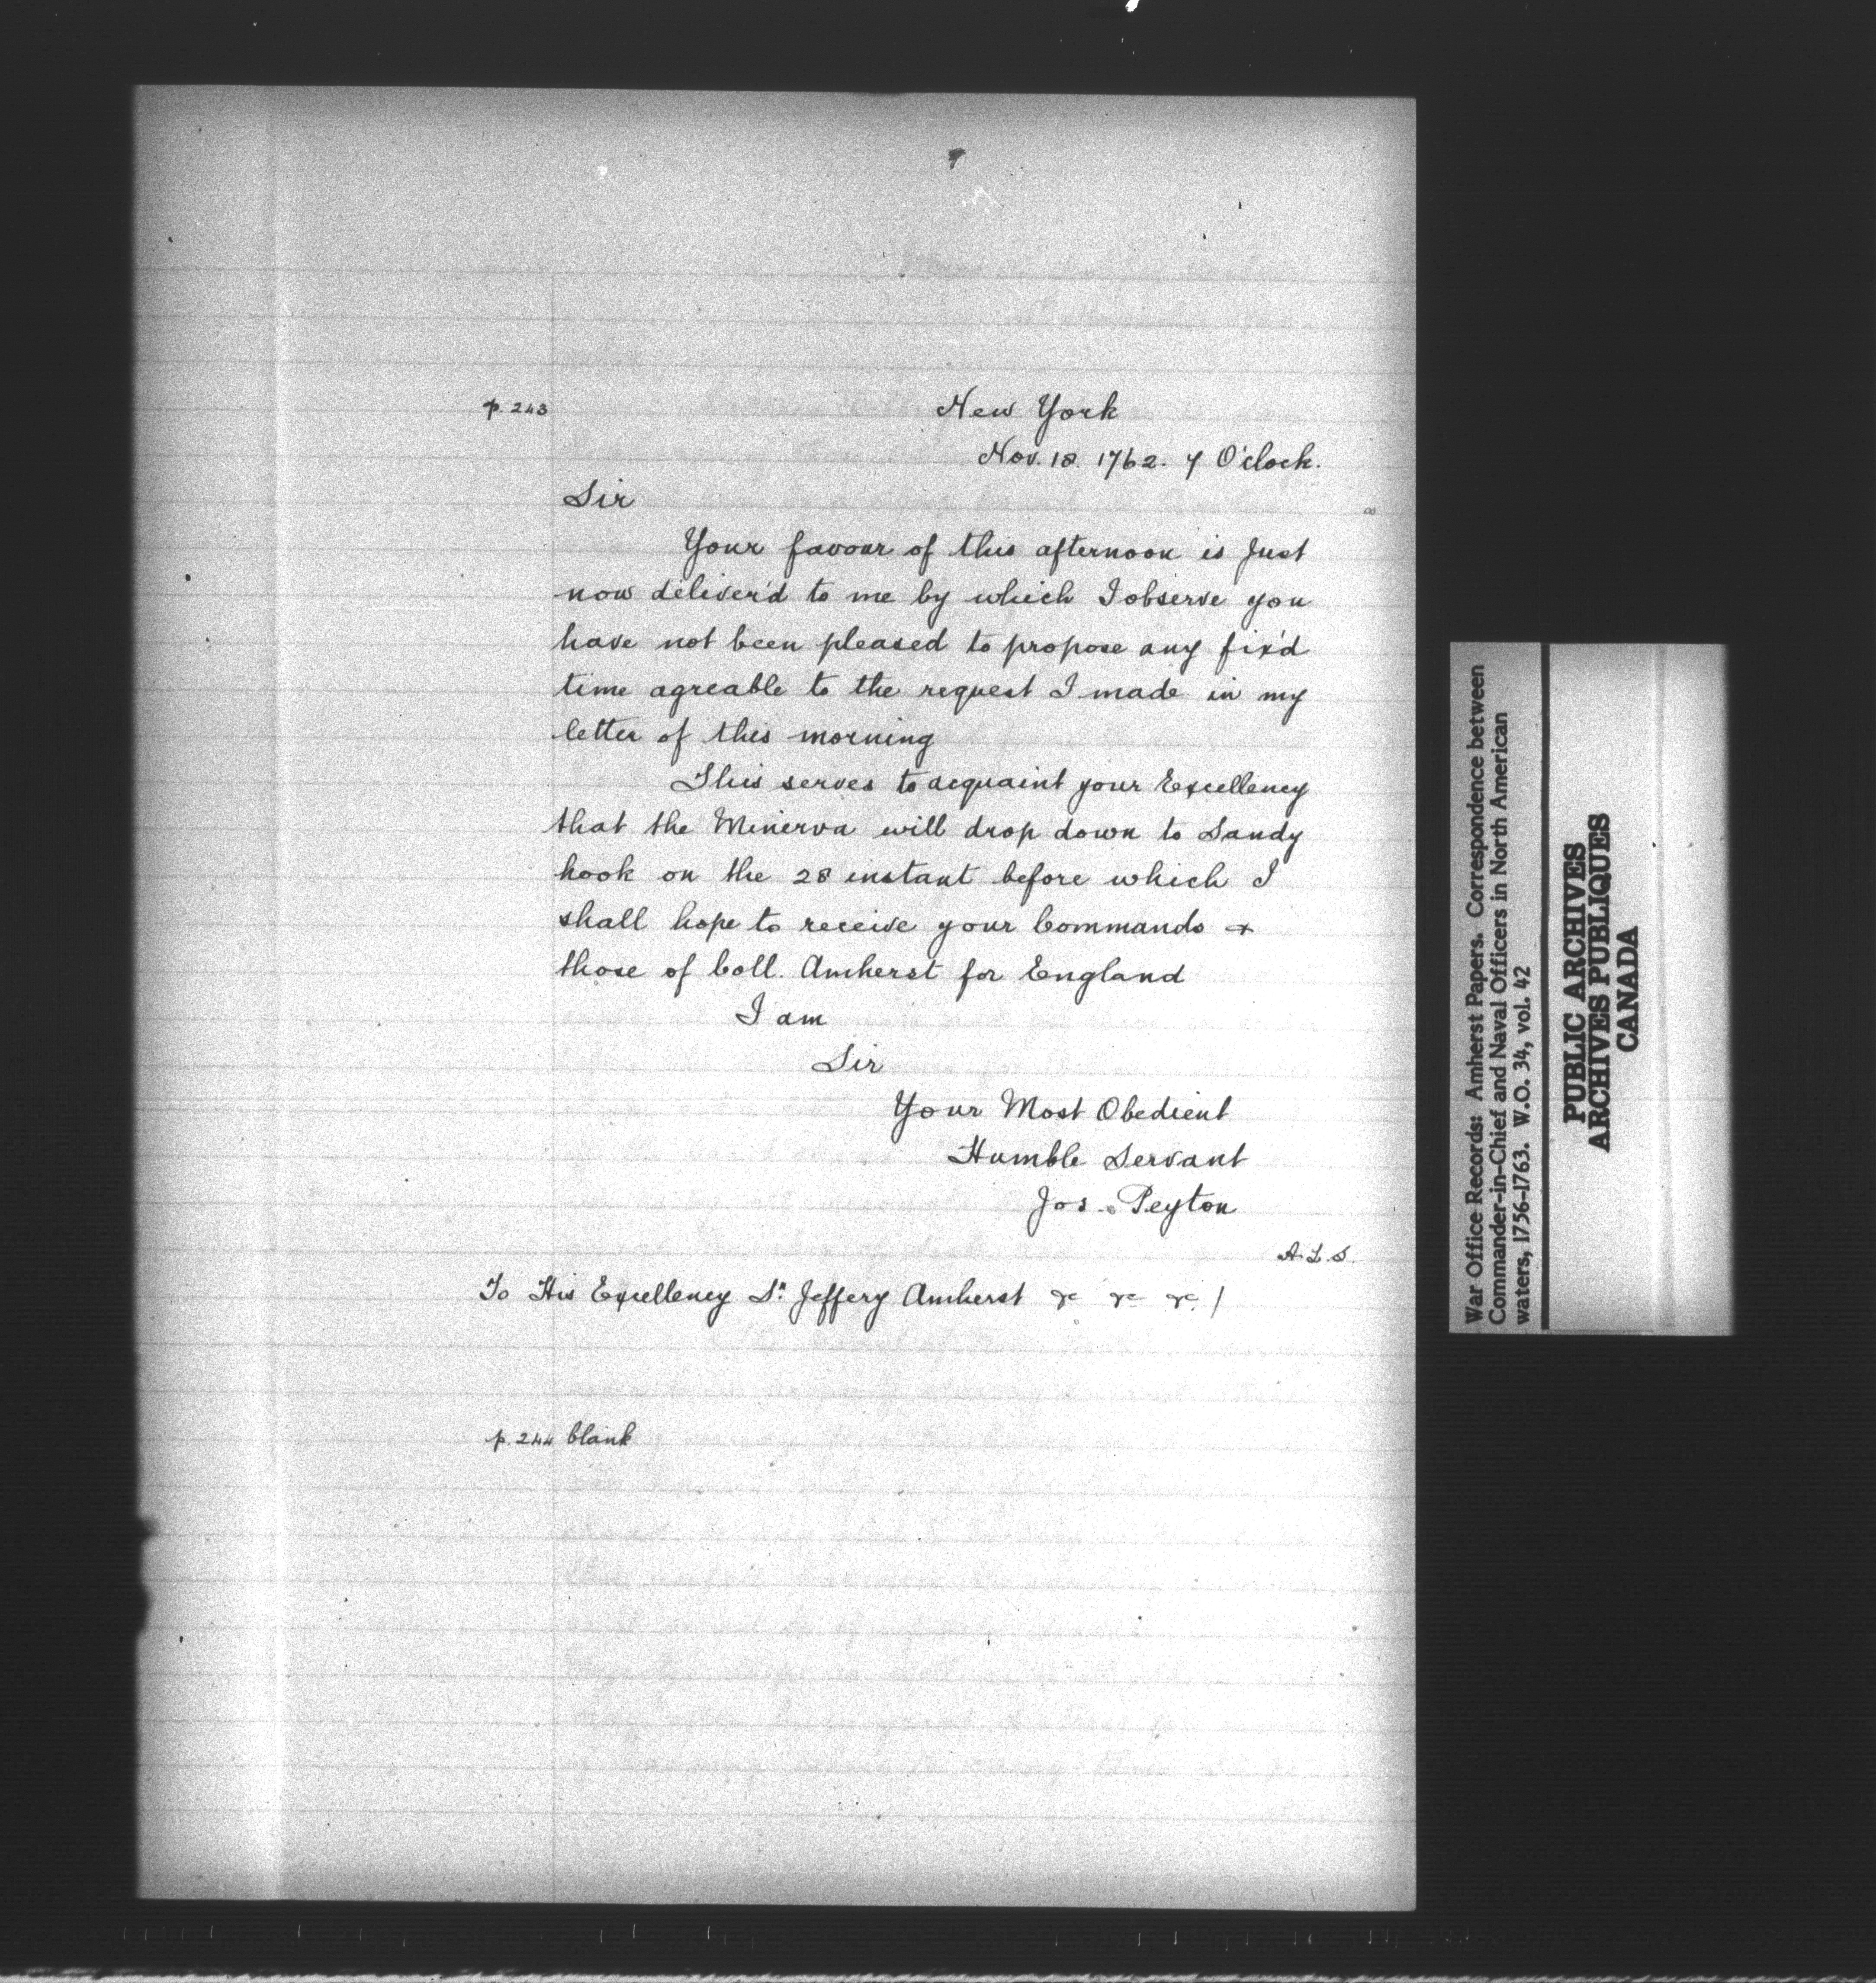 p. 243
New York
Nov. 18. 1762. 7 O'clock.
Sir
Your favour of this afternoon is Just
now deliver'd to me by which I observe you
have not been pleased to propose any fix'd
time agreable to the request I made in my
letter of this morning
This serves to acquaint your Excellency
that the Minerva will drop down to Sandy
hook on the 28 instant before which I
shall hope to receive your Commands &
those of Coll. Amherst for England
I am
Sir
Your Most Obedient
Humble Servant
Jos. Peyton
A.L.S.
To His Excellency Sr. Jeffery Amherst &c &c &c /
p. 244 blank
War Office Records: Amherst Papers. Correspondence between
Commander-in-Chief and Naval Officers in North American
waters, 1756-1763. W.O. 34, vol. 42
PUBLIC ARCHIVES
ARCHIVES PUBLIQUES
CANADA